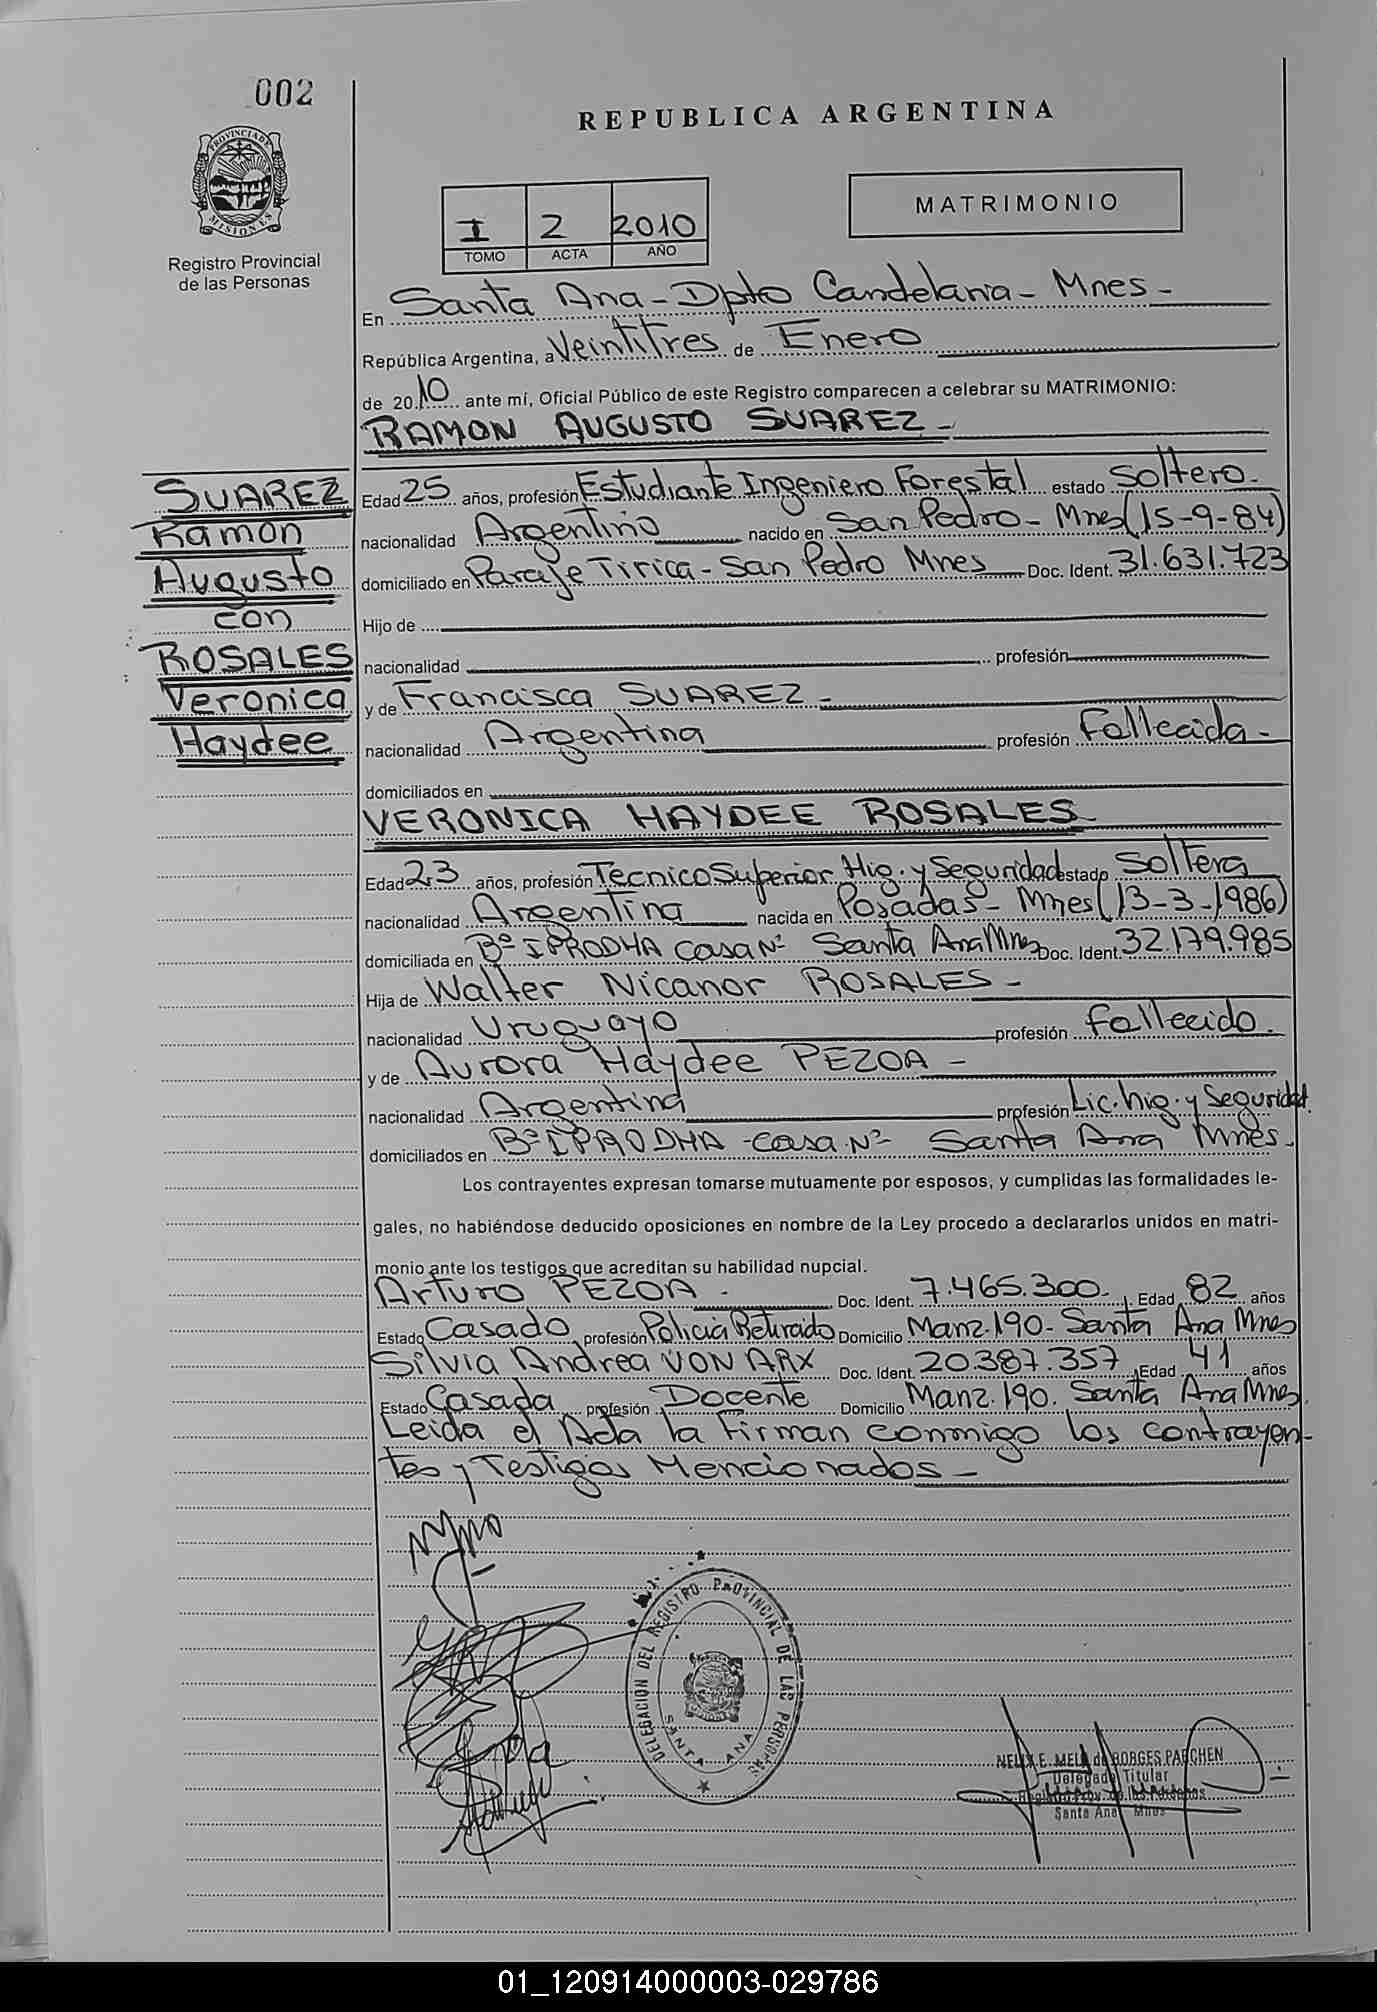 002
REPUBLICA ARGENTINA
PROVINCIA DE
MISIONES
Registro Provincial
de las Personas
I 2 2010
TOMO ACTA AÑO
MATRIMONIO
En Santa Ana - Dpto Candelaria - Mnes -
República Argentina, a Veintitres de Enero
de 2010 ante mí, Oficial Público de este Registro comparecen a celebrar su MATRIMONIO:
RAMON AUGUSTO SUAREZ -
SUAREZ
Ramon
Augusto
con
ROSALES
Veronica
Haydee
Edad 25 años, profesión Estudiante Ingeniero Forestal estado Soltero -
nacionalidad Argentino nacido en San Pedro - Mnes (15-9-84)
domiciliado en Paraje Tirica - San Pedro Mnes Doc. Ident. 31.631.723
Hijo de
nacionalidad profesión
y de Francisca SUAREZ -
nacionalidad Argentina profesión Fallecida -
domiciliados en
VERONICA HAYDEE ROSALES -
Edad 23 años, profesión Tecnico Superior Hig. y Seguridad estado Soltera
nacionalidad Argentina nacida en Posadas - Mnes (13-3-1986)
domiciliada en Bº IPRODHA casa Nº Santa Ana Mnes Doc. Ident. 32.179.985
Hija de Walter Nicanor ROSALES -
nacionalidad Uruguayo profesión fallecido.
y de Aurora Haydee PEZOA -
nacionalidad Argentina profesión Lic. hig. y Seguridad.
domiciliados en Bº IPRODHA - casa Nº Santa Ana Mnes -
Los contrayentes expresan tomarse mutuamente por esposos, y cumplidas las formalidades le-
gales, no habiéndose deducido oposiciones en nombre de la Ley procedo a declararlos unidos en matri-
monio ante los testigos que acreditan su habilidad nupcial.
Arturo PEZOA - Doc. Ident. 7.465.300 - Edad 82 años
Estado Casado profesión Policia Retirado Domicilio Manz. 190 - Santa Ana Mnes
Silvia Andrea VON ARX Doc. Ident. 20.387.357 Edad 41 años
Estado Casada profesión Docente Domicilio Manz. 190. Santa Ana Mnes.
Leida el Acta la Firman conmigo los contrayen-
tes y Testigos Mencionados -
DELEGACION DEL REGISTRO PROVINCIAL DE LAS PERSONAS
SANTA ANA
E. MELA de BORGES PAECHEN
Delegada Titular
Registro Prov. de las Personas
Santa Ana Mnes
01_120914000003-029786